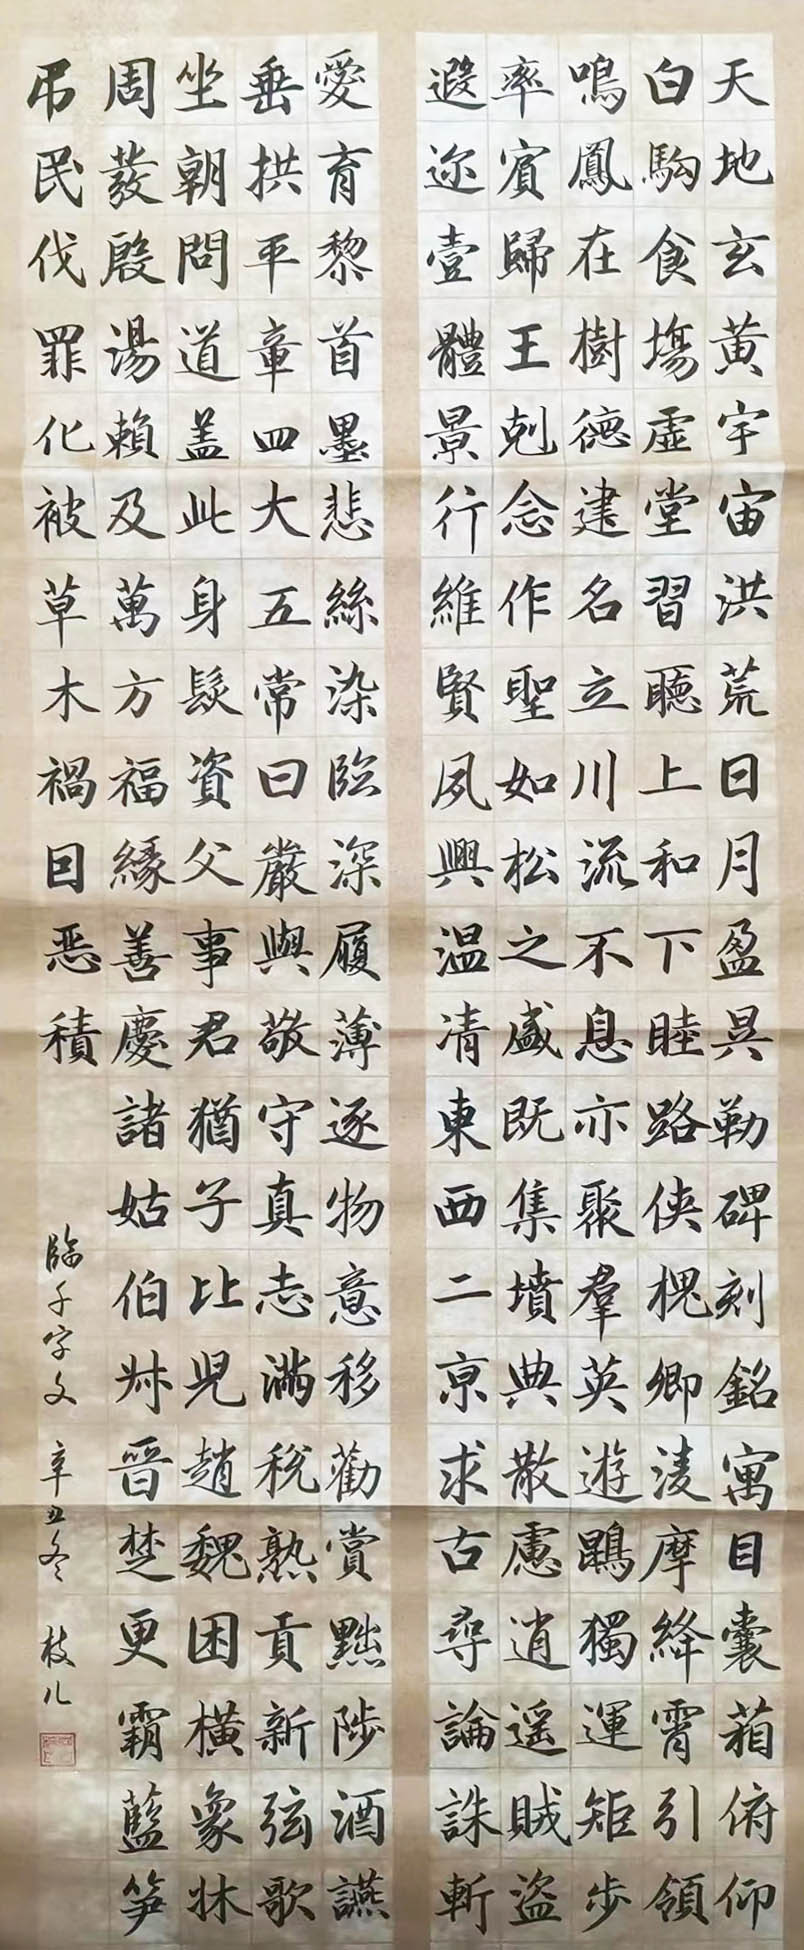 天地玄黄宇宙洪荒日月盈昃勒碑刻銘寓目囊葙俯仰
白駒食場虚堂習聽上和下睦路侠槐卿淩摩絳霄引領
鳴鳳在樹德建名立川流不息亦聚羣英遊鵾獨運矩步
率賓歸王剋念作聖如松之盛既集墳典散慮逍遥賊盗
遐迩壹體景行維賢夙興温凊東西二京求古尋論誅斬
愛育黎首墨悲絲染臨深履薄逐物意移勸賞黜陟酒讌
垂拱平章四大五常曰嚴與敬守真志滿税熟貢新弦歌
坐朝問道盖此身髮資父事君猶子比兒趙魏困横象牀
周發殷湯賴及萬方福緣善慶諸姑伯叔晉楚更霸藍笋
吊民伐罪化被草木禍因惡積
臨千字文 辛丑冬 枝儿